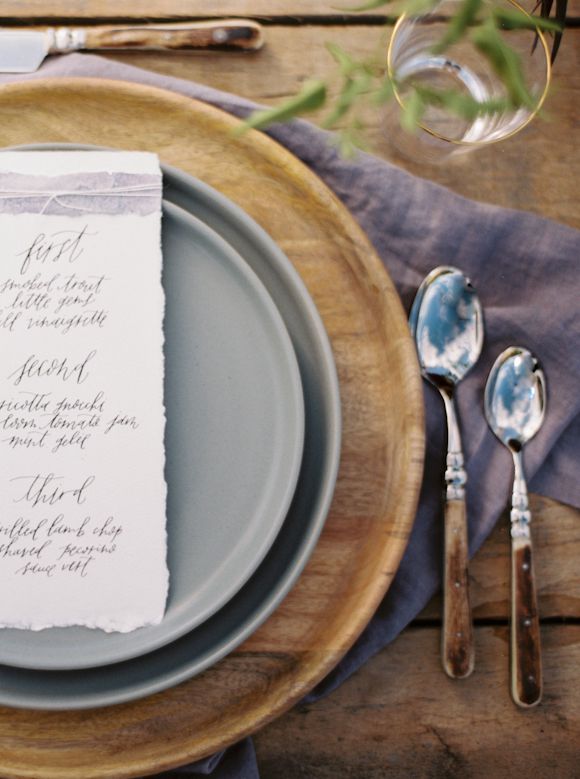 first
smoked trout
little gems
ll vinaigrette
second
ricotta gnocchi
loom tomato jam
mint gelee
third
rilled lamb chop
shaved pecorino
sauce vert